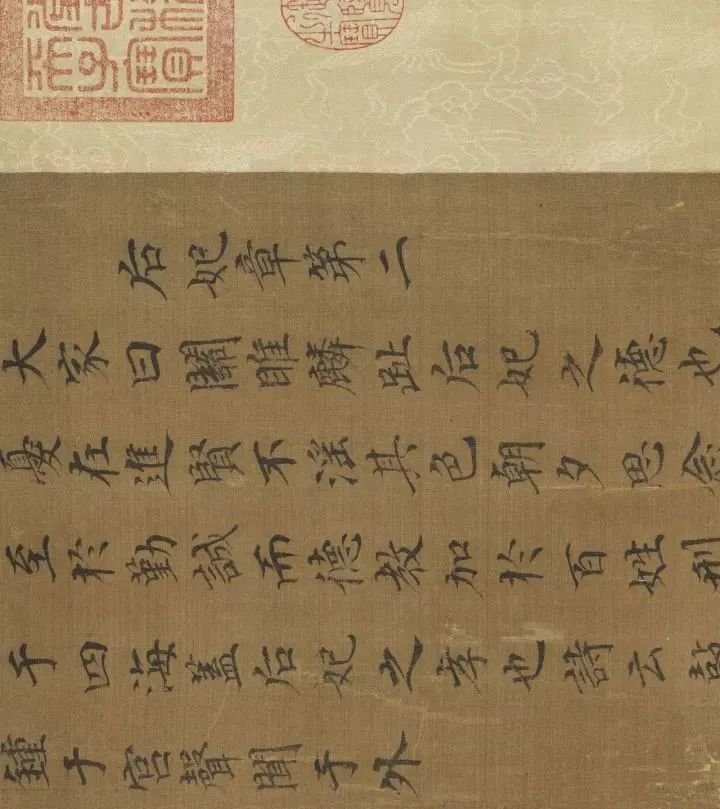 后妃章第二
大家曰關雎麟趾后妃之德也
憂在進賢不淫其色朝夕思念
至於勤誠而德教加於百姓刑
于四海蓋后妃之孝也詩云鼓
鍾于宮聲聞于外